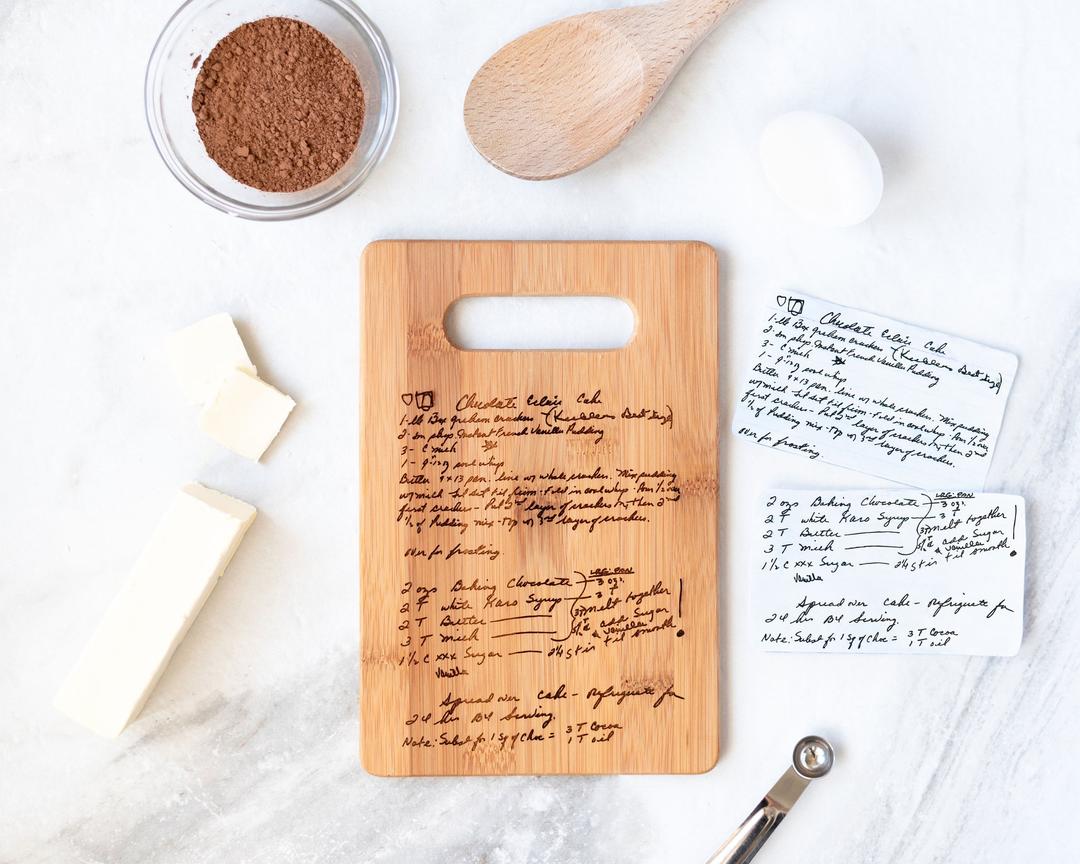 Chocolate Eclair Cake
1-lb Box graham crackers (Keebler Best
2-sm pkgs. Instant French Vanilla Pudding
3- C milk
1- 9 oz cool whip
Butter 9x13 pan. Line w/ whole crackers. Mix pudding
w/ milk let set til firm - Fold in cool whip. Pour 1/2 over
first crackers - Put 2nd layer of crackers in, then 2nd
1/2 of Pudding mix - Top w/ 3rd layer of crackers.
over for frosting.
2 ozs Baking Chocolate 3 ozs.
2 T white Karo Syrup 3 T
2 T Butter melt together
3 T milk add Sugar & vanilla
1 1/2 C xxx Sugar 2 1/4 stir til smooth
Vanilla
Spread over cake - Refrigerate for
24 hrs B4 Serving.
Note: Subst for 1 Sq of Choc = 3 T Cocoa
1 T oil
Chocolate Eclair Cake
1-lb Box graham crackers (Keebler Best
2-sm pkgs. Instant French Vanilla Pudding
3- C milk
1- 9 oz cool whip
Butter 9x13 pan. Line w/ whole crackers. Mix pudding
w/ milk let set til firm - Fold in cool whip. Pour 1/2 over
first crackers - Put 2nd layer of crackers in, then 2nd
1/2 of Pudding mix - Top w/ 3rd layer of crackers.
over for frosting.
LRG. PAN
2 ozs Baking Chocolate 3 ozs.
2 T white Karo Syrup 3 T
2 T Butter melt together
3 T milk add Sugar & vanilla
1 1/2 C xxx Sugar 2 1/4 stir til smooth
Vanilla
Spread over cake - Refrigerate for
24 hrs B4 Serving.
Note: Subst for 1 Sq of Choc = 3 T Cocoa
1 T oil